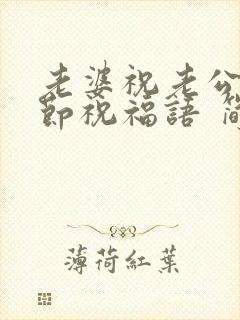 老婆祝老公
節祝福語 簡
薄荷紅葉